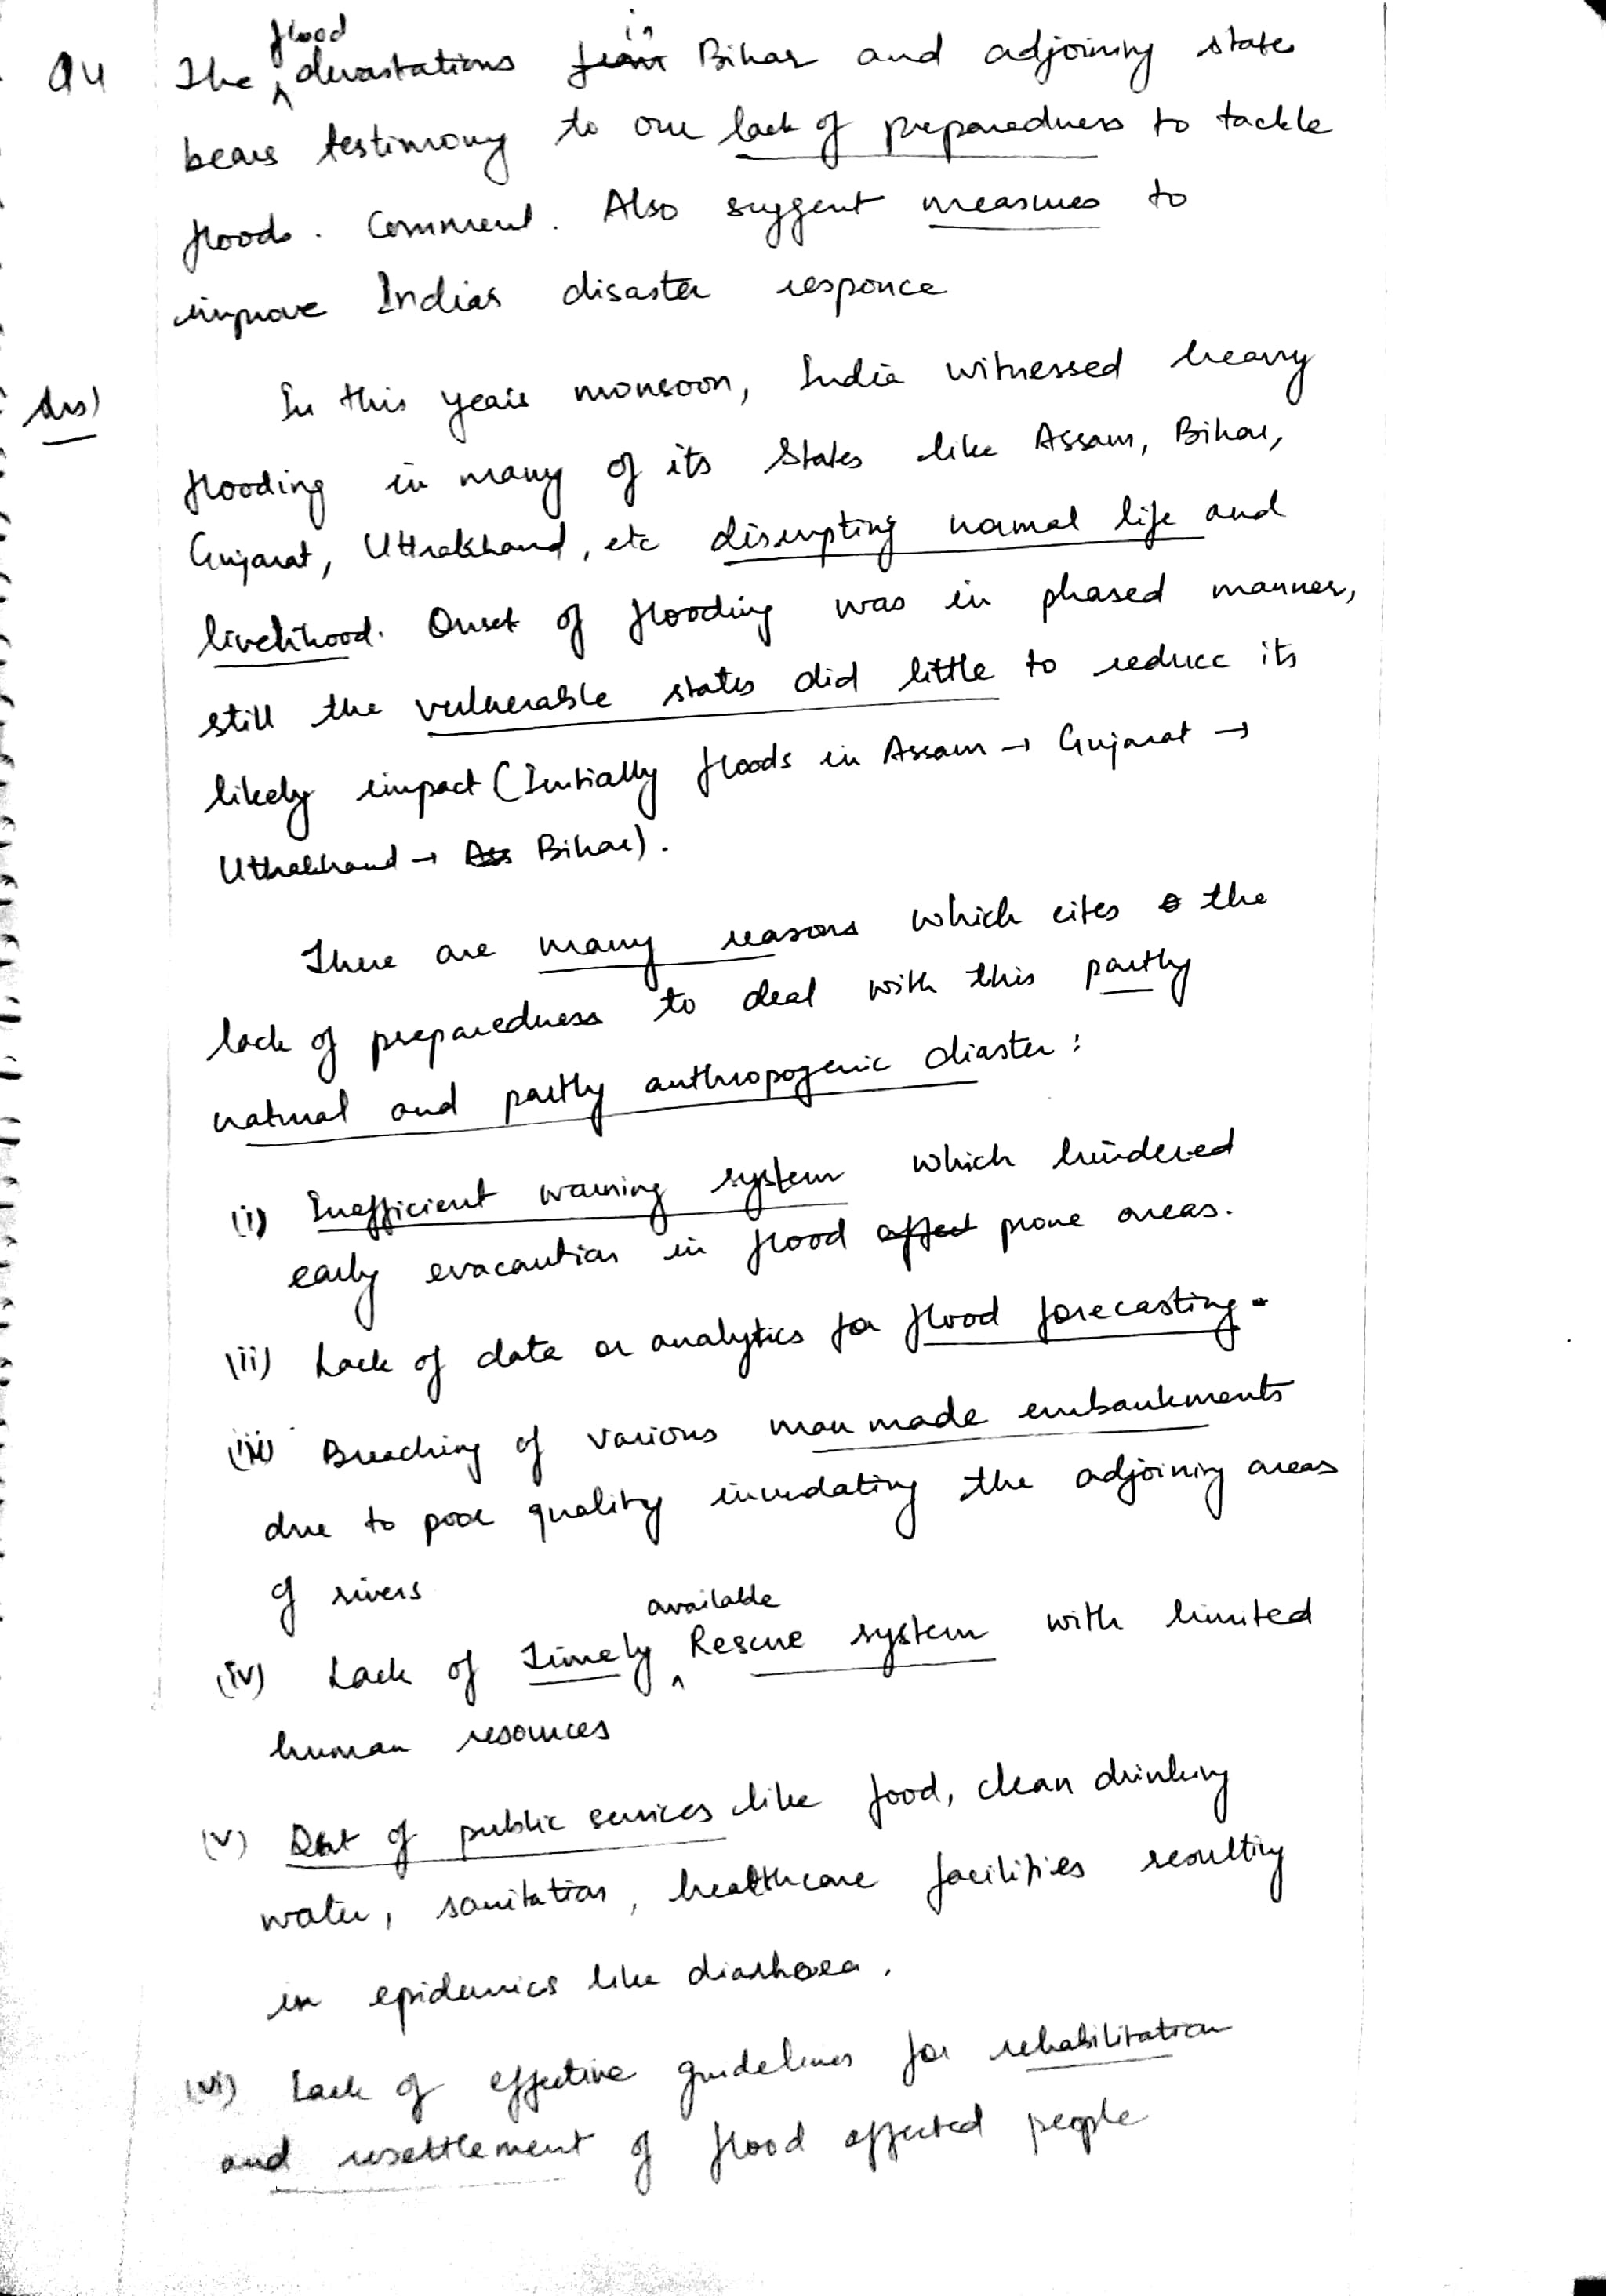 Q4 The flood devastations in Bihar and adjoining states
bears testimony to our lack of preparedness to tackle
floods. Comment. Also suggent measures to
improve Indias disaster responce
Ans) In this years monsoon, India witnessed heavy
flooding in many of its States like Assam, Bihar,
Gujarat, Uttrakhand, etc disrupting normal life and
livelihood. Onset of flooding was in phased manner,
still the vulnerable states did little to reduce its
likely impact (Initially floods in Assam → Gujarat →
Uttrakhand → Ass Bihar).
There are many reasons which cites the
lack of preparedness to deal with this partly
natural and partly anthropogenic diaster:
(i) Inefficient warning system which hindered
early evacaution in flood affect prone areas.
(ii) Lack of data or analytics for flood forecasting.
(iii) Breaching of various man made embankments
due to poor quality inundating the adjoining areas
of rivers
(iv) Lack of Timely available Rescue system with limited
human resources
(v) of public services like food, clean drinking
water, sanitation, healthcare facilities resulting
in epidemics like diarhoea.
(vi) Lack of effective guidelines for rehabilitation
and resettlement of flood affected people